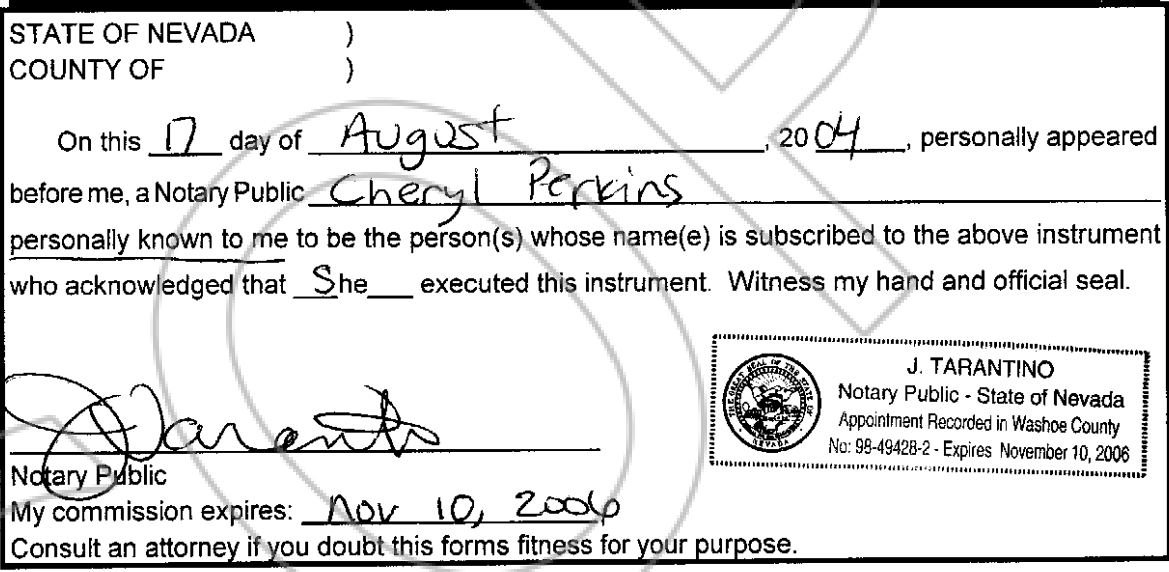 STATE OF NEVADA )
COUNTY OF )
On this 17 day of August, 2004, personally appeared
before me, a Notary Public Cheryl Perkins
personally known to me to be the person(s) whose name(e) is subscribed to the above instrument
who acknowledged that She executed this instrument. Witness my hand and official seal.
J. TARANTINO
Notary Public - State of Nevada
Appointment Recorded in Washoe County
No: 98-49428-2 - Expires November 10, 2006
THE GREAT SEAL OF THE STATE OF NEVADA
Notary Public
My commission expires: Nov 10, 2006
Consult an attorney if you doubt this forms fitness for your purpose.